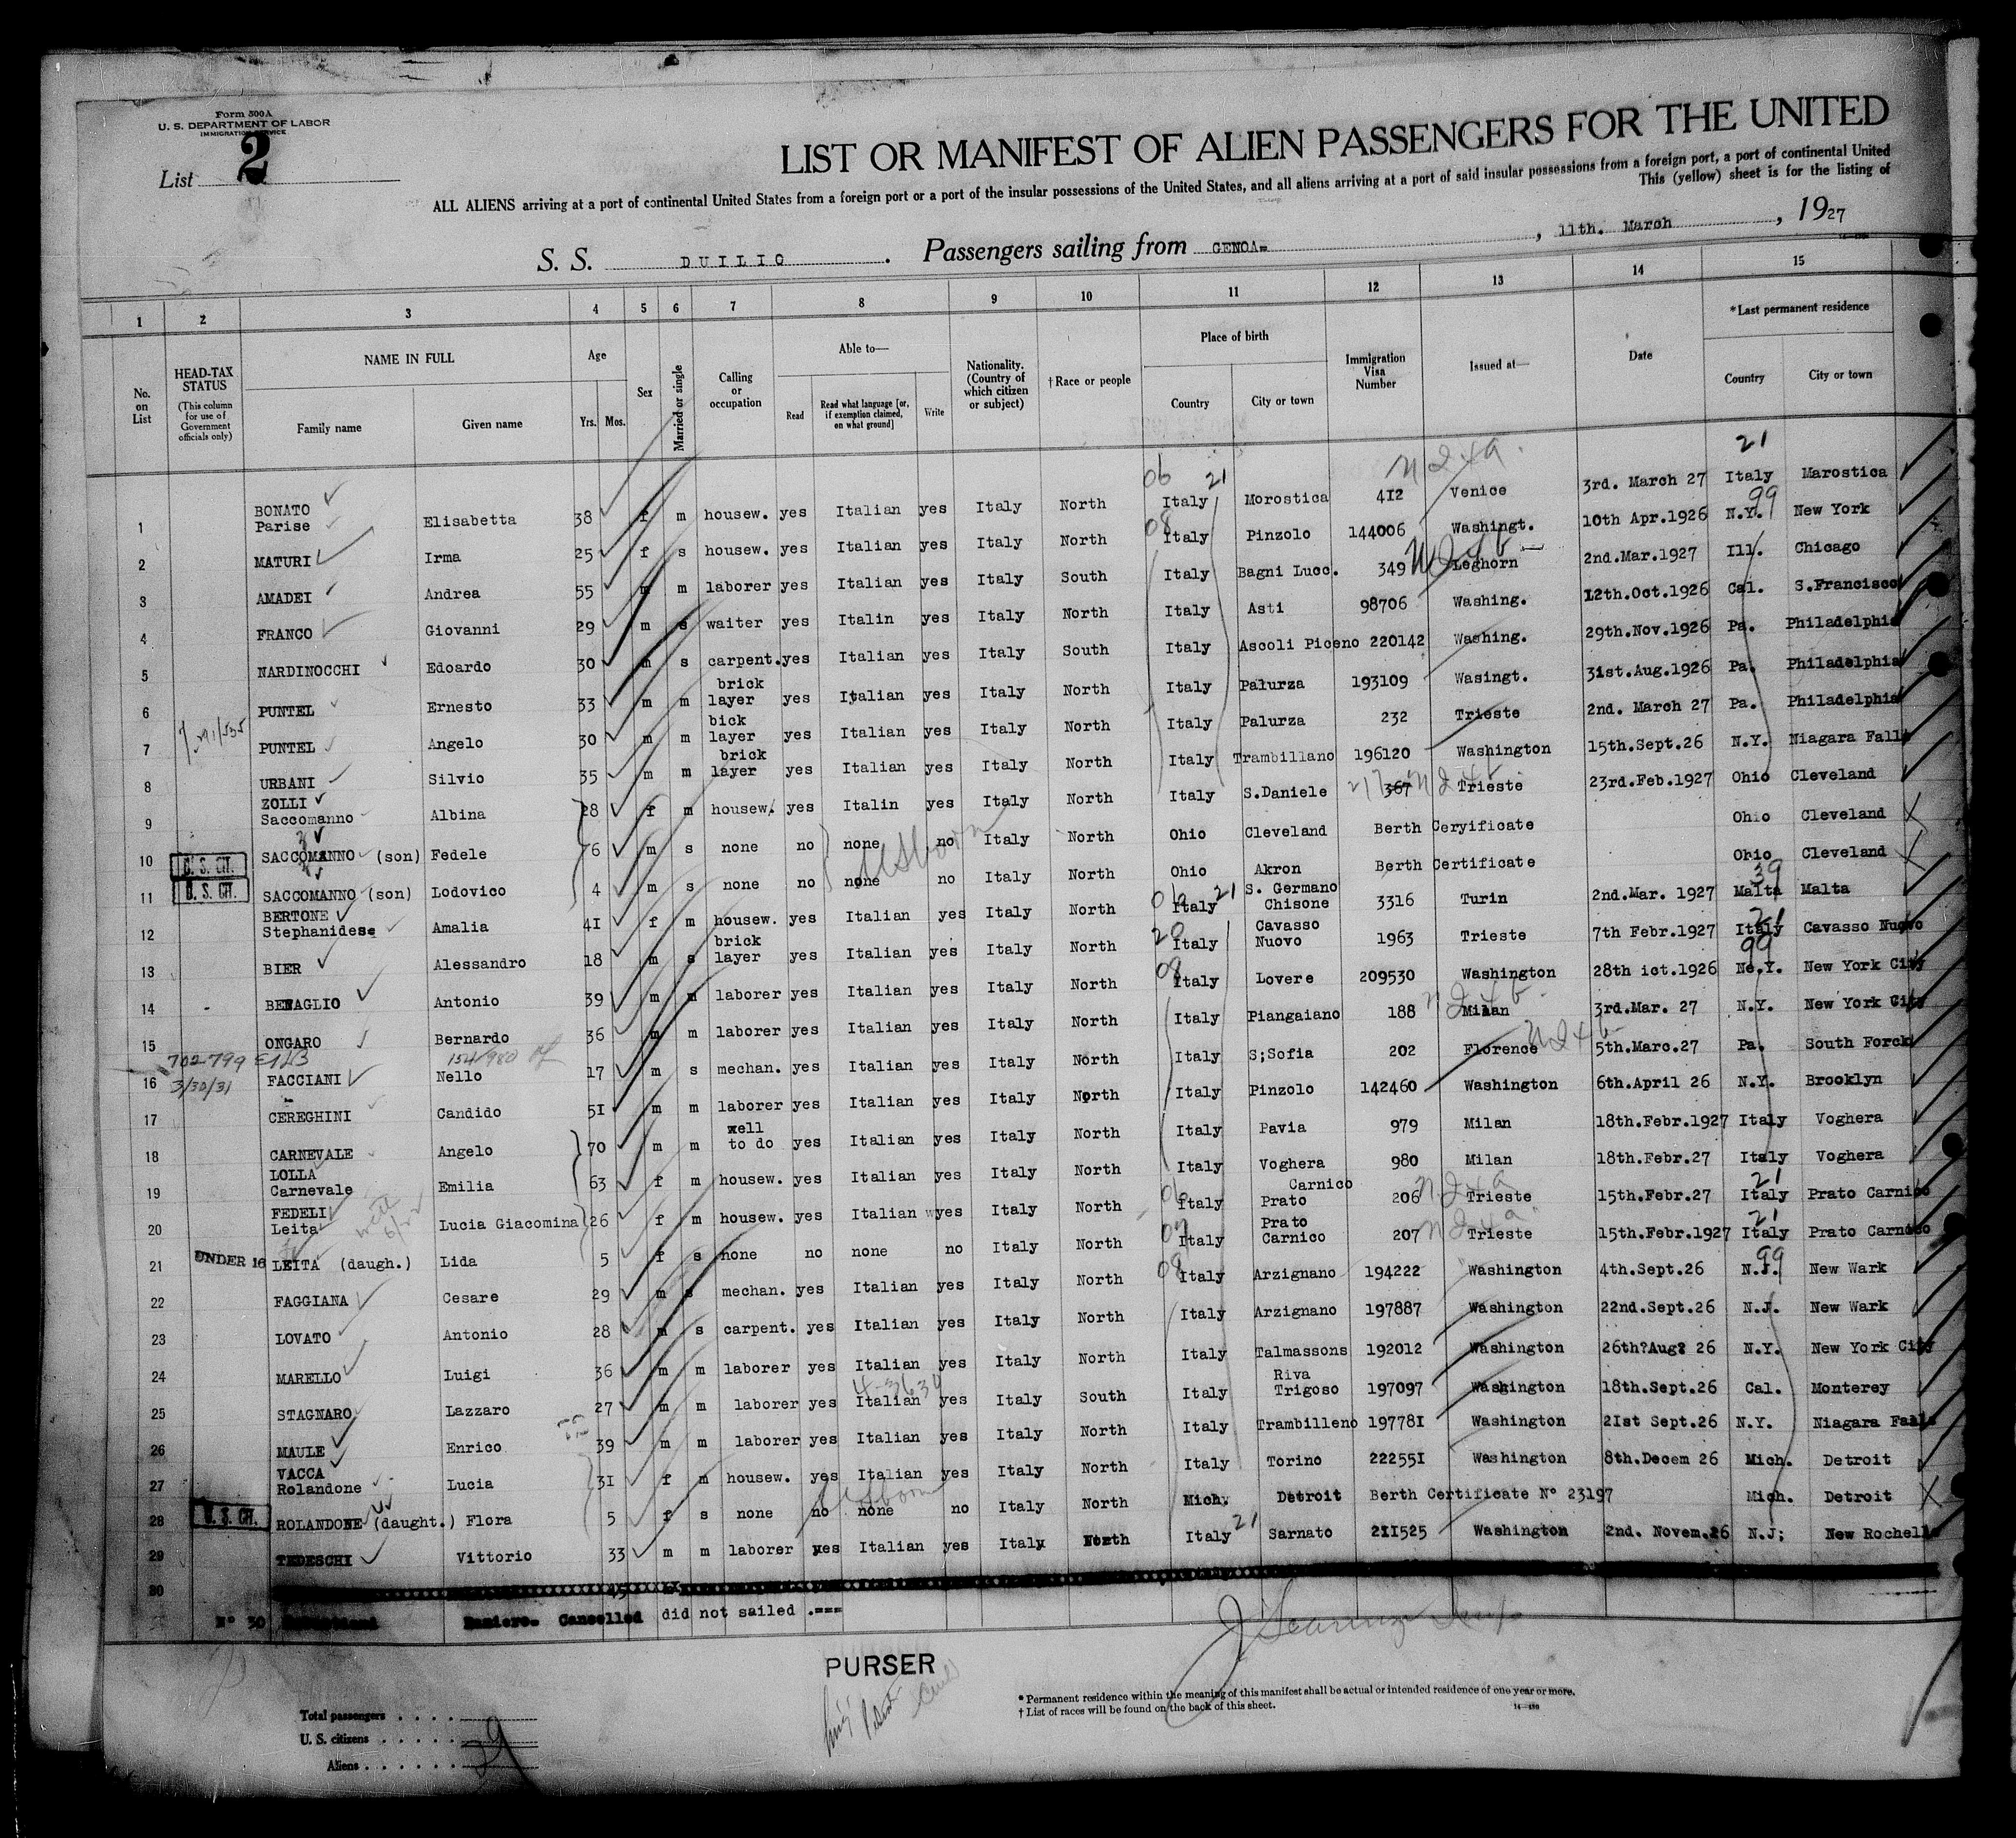 Form 500A
U. S. DEPARTMENT OF LABOR
IMMIGRATION SERVICE
List 2
LIST OR MANIFEST OF ALIEN PASSENGERS FOR THE UNITED
ALL ALIENS arriving at a port of continental United States from a foreign port or a port of the insular possessions of the United States, and all aliens arriving at a port of said insular possessions from a foreign port, a port of continental United
This (yellow) sheet is for the listing of
S. S. DUILIO . Passengers sailing from GENOA= , 11th. March , 1927
1 2 3 4 5 6 7 8 9 10 11 12 13 14 15
No. on List
HEAD-TAX STATUS
(This column for use of Government officials only)
NAME IN FULL
Family name
Given name
Age
Yrs. Mos.
Sex
Married or single
Calling or occupation
Able to—
Read
Read what language [or, if exemption claimed, on what ground]
Write
Nationality. (Country of which citizen or subject)
† Race or people
Place of birth
Country
City or town
Immigration Visa Number
Issued at—
Date
*Last permanent residence
Country
City or town
06 21 21
1 BONATO Parise Elisabetta 38 f m housew. yes Italian yes Italy North Italy Morostica 412 Venice 3rd. March 27 Italy Marostica
08 99
2 MATURI Irma 25 f s housew. yes Italian yes Italy North Italy Pinzolo 144006 Washingt. 10th Apr.1926 N.Y. New York
3 AMADEI Andrea 55 m m laborer yes Italian yes Italy South Italy Bagni Lucc. 349 Leghorn 2nd.Mar.1927 Ill. Chicago
4 FRANCO Giovanni 29 m s waiter yes Italin yes Italy North Italy Asti 98706 Washing. 12th.Oct.1926 Cal. S.Francisco
5 NARDINOCCHI Edoardo 30 m s carpent. yes Italian yes Italy South Italy Ascoli Piceno 220142 Washing. 29th.Nov.1926 Pa. Philadelphia
6 PUNTEL Ernesto 33 m m brick layer yes Italian yes Italy North Italy Palurza 193109 Wasingt. 31st.Aug.1926 Pa. Philadelphia
7 PUNTEL Angelo 30 m m bick layer yes Italian yes Italy North Italy Palurza 232 Trieste 2nd. March 27 Pa. Philadelphia
8 URBANI Silvio 35 m m brick layer yes Italian yes Italy North Italy Trambillano 196120 Washington 15th.Sept.26 N.Y. Niagara Falls
9 ZOLLI Saccomanno Albina 28 f m housew. yes Italin yes Italy North Italy S.Daniele 367 Trieste 23rd.Feb.1927 Ohio Cleveland
10 U. S. CIT. SACCOMANNO (son) Fedele 6 m s none no none no Italy North Ohio Cleveland Berth Ceryificate Ohio Cleveland
11 U. S. CIT. SACCOMANNO (son) Lodovico 4 m s none no none no Italy North Ohio Akron Berth Certificate Ohio Cleveland
US born
06 21 39
12 BERTONE Stephanidese Amalia 41 f m housew. yes Italian yes Italy North Italy S. Germano Chisone 3316 Turin 2nd.Mar. 1927 Malta Malta
20 21
13 BIER Alessandro 18 m s brick layer yes Italian yes Italy North Italy Cavasso Nuovo 1963 Trieste 7th Febr.1927 Italy Cavasso Nuovo
08 99
14 BENAGLIO Antonio 39 m m laborer yes Italian yes Italy North Italy Lovere 209530 Washington 28th ict.1926 Ne.Y. New York City
15 ONGARO Bernardo 36 m m laborer yes Italian yes Italy North Italy Piangaiano 188 Milan 3rd.Mar. 27 N.Y. New York City
702-799 3/30/31
16 FACCIANI Nello 17 m s mechan. yes Italian yes Italy North Italy S;Sofia 202 Florence 5th.Marc.27 Pa. South Forck
17 CEREGHINI Candido 51 m m laborer yes Italian yes Italy North Italy Pinzolo 142460 Washington 6th.April 26 N.Y. Brooklyn
18 CARNEVALE Angelo 70 m m well to do yes Italian yes Italy North Italy Pavia 979 Milan 18th.Febr.1927 Italy Voghera
19 LOLLA Carnevale Emilia 63 f m housew. yes Italian yes Italy North Italy Voghera 980 Milan 18th.Febr.27 Italy Voghera
06 21
20 FEDELI Leita Lucia Giacomina 26 f m housew. yes Italian yes Italy North Italy Carnico Prato 206 Trieste 15th.Febr.27 Italy Prato Carnico
21
21 UNDER 16 LEITA (daugh.) Lida 5 f s none no none no Italy North Italy Prato Carnico 207 Trieste 15th.Febr.1927 Italy Prato Carnico
08 99
22 FAGGIANA Cesare 29 m s mechan. yes Italian yes Italy North Italy Arzignano 194222 Washington 4th.Sept.26 N.J. New Wark
23 LOVATO Antonio 28 m s carpent. yes Italian yes Italy North Italy Arzignano 197887 Washington 22nd.Sept.26 N.J. New Wark
24 MARELLO Luigi 36 m m laborer yes Italian yes Italy North Italy Talmassons 192012 Washington 26th?Aug? 26 N.Y. New York City
25 STAGNARO Lazzaro 27 m m laborer yes Italian yes Italy South Italy Riva Trigoso 197097 Washington 18th.Sept.26 Cal. Monterey
26 MAULE Enrico 39 m m laborer yes Italian yes Italy North Italy Trambilleno 197781 Washington 21st Sept.26 N.Y. Niagara Falls
27 VACCA Rolandone Lucia 31 f m housew. yes Italian yes Italy North Italy Torino 222551 Washington 8th.Decem 26 Mich. Detroit
US born
28 U. S. CIT. ROLANDONE (daught.) Flora 5 f s none no none no Italy North Mich. Detroit Berth Certificate N° 23197 Mich. Detroit
21
29 TEDESCHI Vittorio 33 m m laborer yes Italian yes Italy North Italy Sarnato 211525 Washington 2nd. Novem.26 N.J; New Rochelle
30 45
N° 30 Raniero= Cancelled did not sailed .===
PURSER
* Permanent residence within the meaning of this manifest shall be actual or intended residence of one year or more.
† List of races will be found on the back of this sheet.
Total passengers . . . .
U. S. citizens . . . . .
Aliens . . . . . . 29